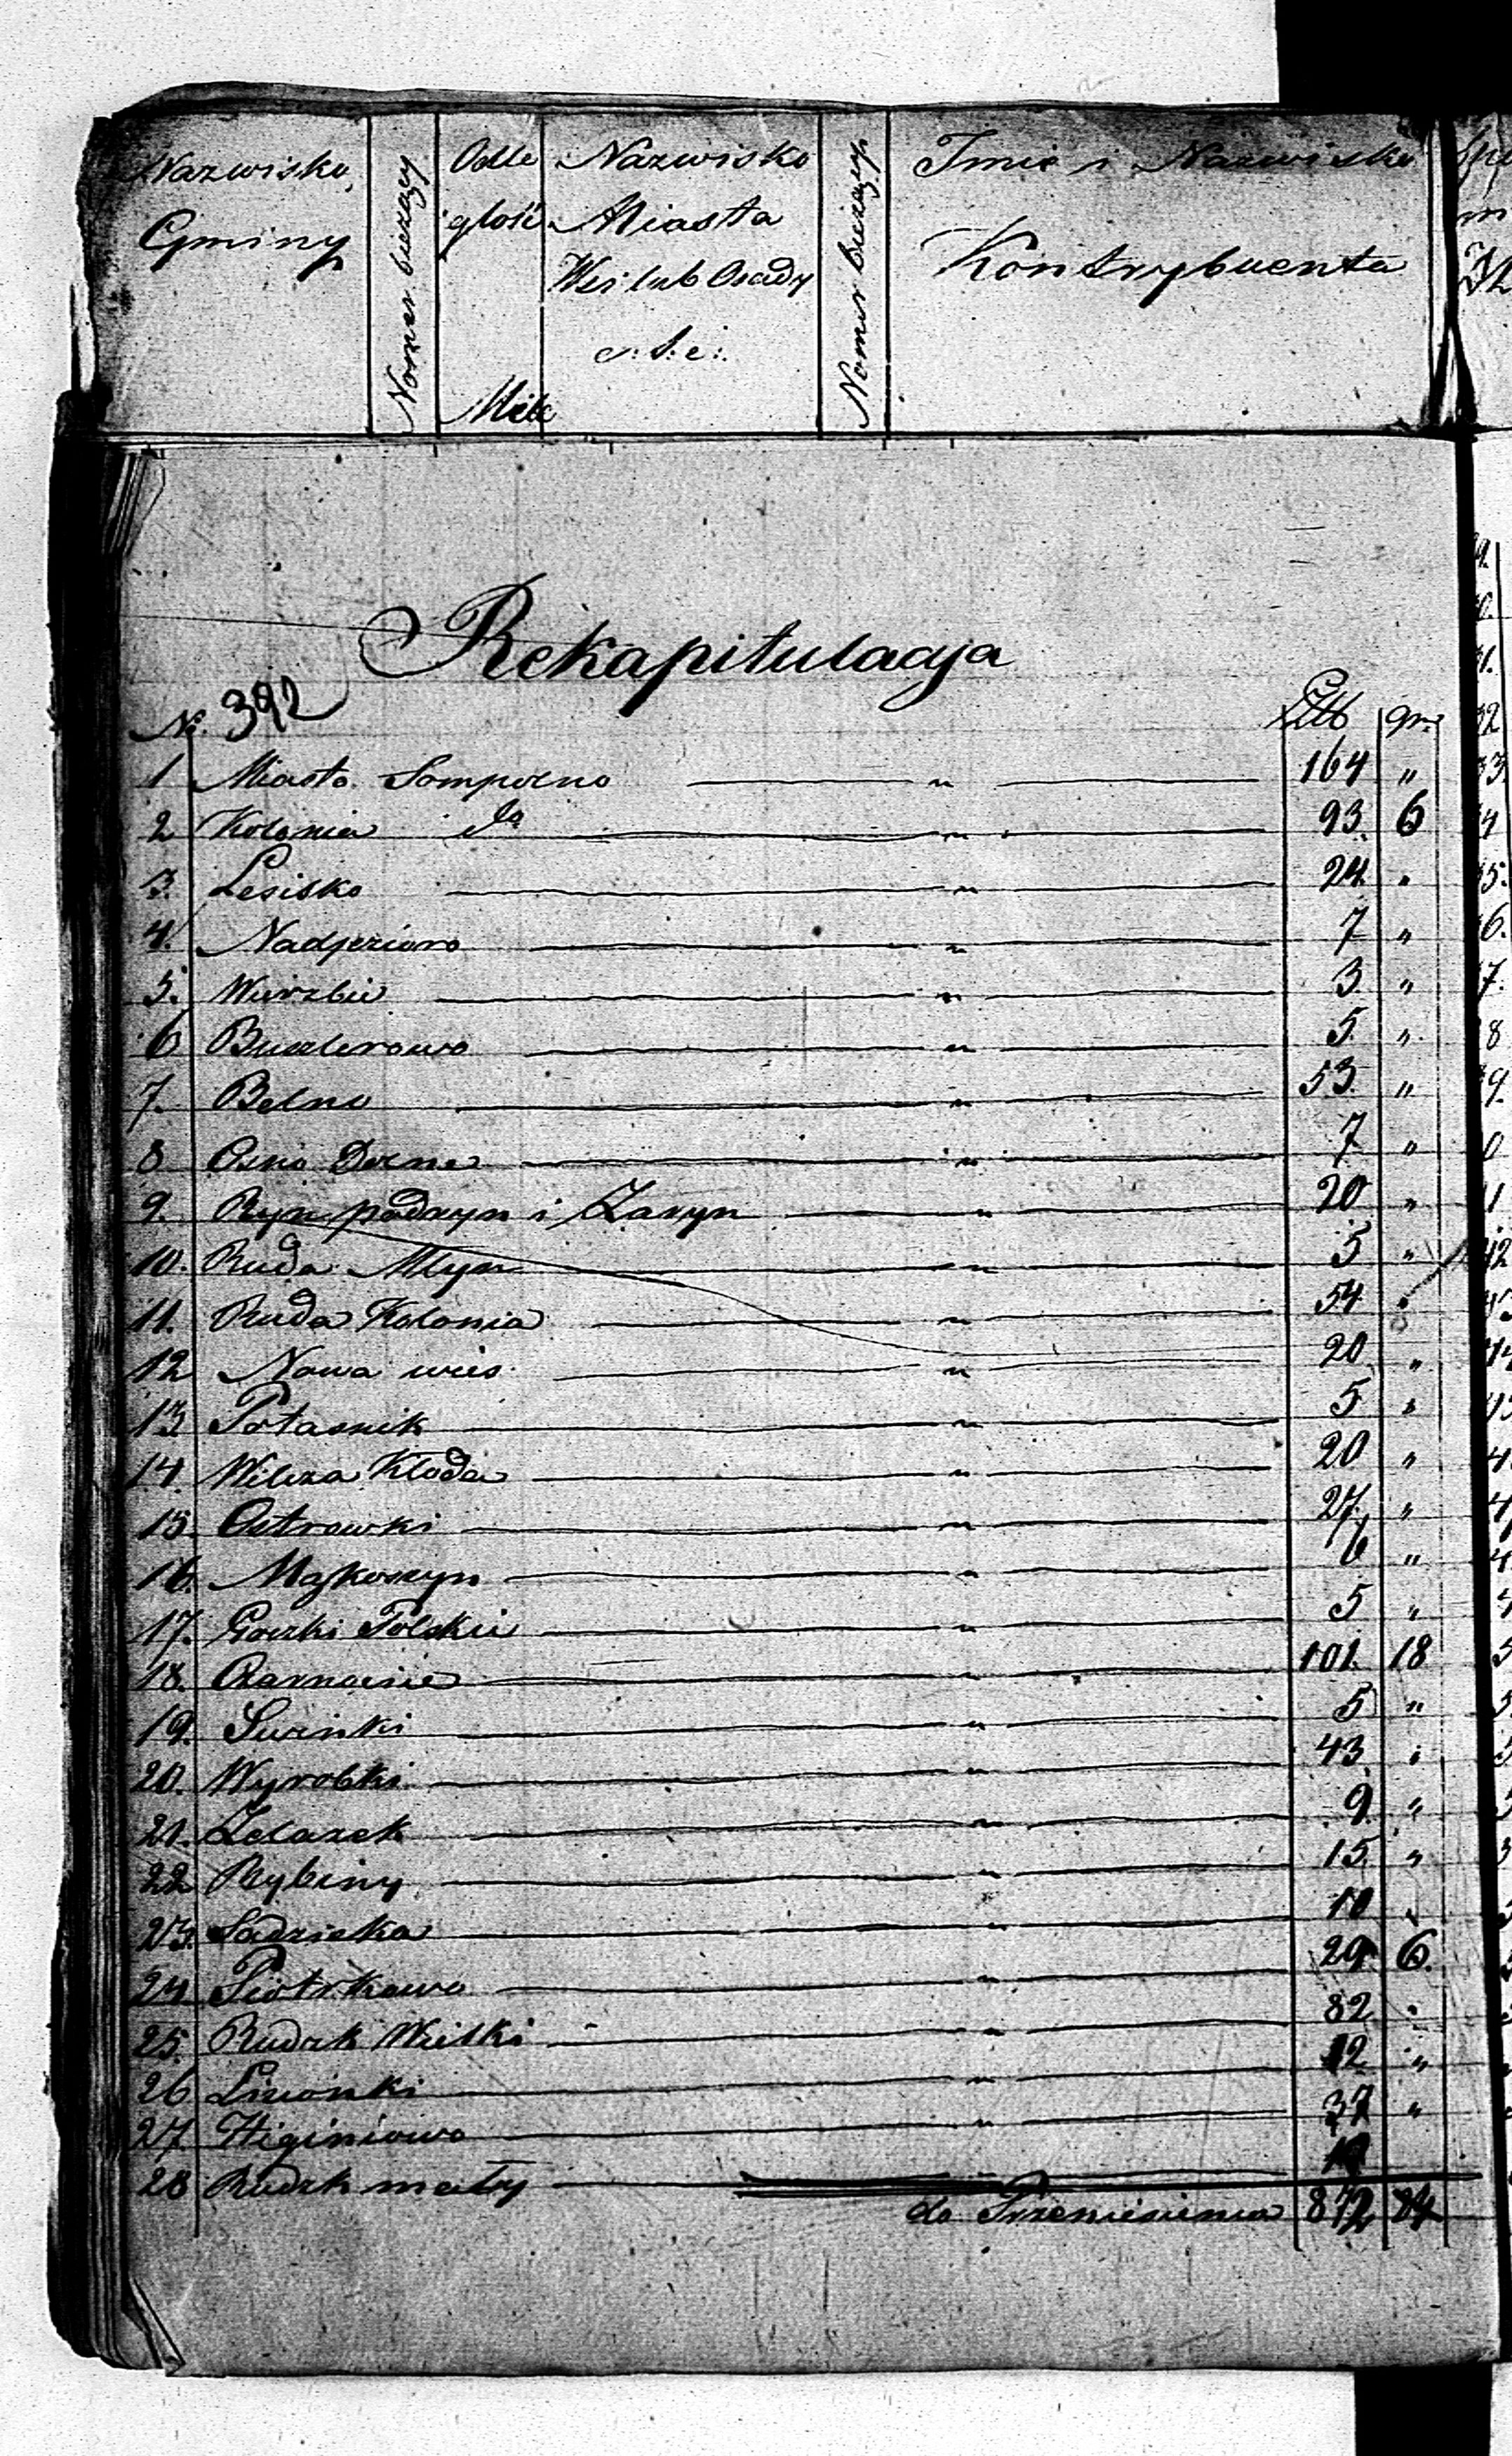 Nazwisko
Gminy
Numer bieżący
Odle
głość
Mile
Nazwisko
Miasta
Wsi lub Osady
Numer bieżący
Imie i Nazwisko
Kontrybuenta
Rekapitulacja
No. 392 gr.
1 Miasto Sompolno " 164 "
2 Kolonia do " 93. 6
3. Lesisko " 24 "
4. Nadjezioro " 7 "
5. Wierzbie " 3 "
6 Buszlerowo " 5. "
7. Belno " 53. "
8 Osno Dolne " 7 "
9. Ryn podryn i Zaryn " 20 "
10. Ruda Mlyn " 5 "
11. Ruda Kolonia " 54 "
12 Nowa wies " 20 "
13 Potasnik " 5 "
14. Wilcza Kłoda " 20 "
15. Ostrowki " 27. "
16. Mąkoszyn " 6 "
17. Goczki Polskie " 5 "
18. Czarnocice " 101. 18
19. Swinki " 5 "
20. Wyrobki " 43 "
21. Zelazek " 9. "
22 Rybiny " 15. "
23. Sadziska " 10
24 Piotrkowo " 29 6.
25. Rudzk Wielki " 82 "
26 Liwonki " 12 "
27. Higieniowo " 37 "
28 Rudzk mały
do Przeniesienia 872